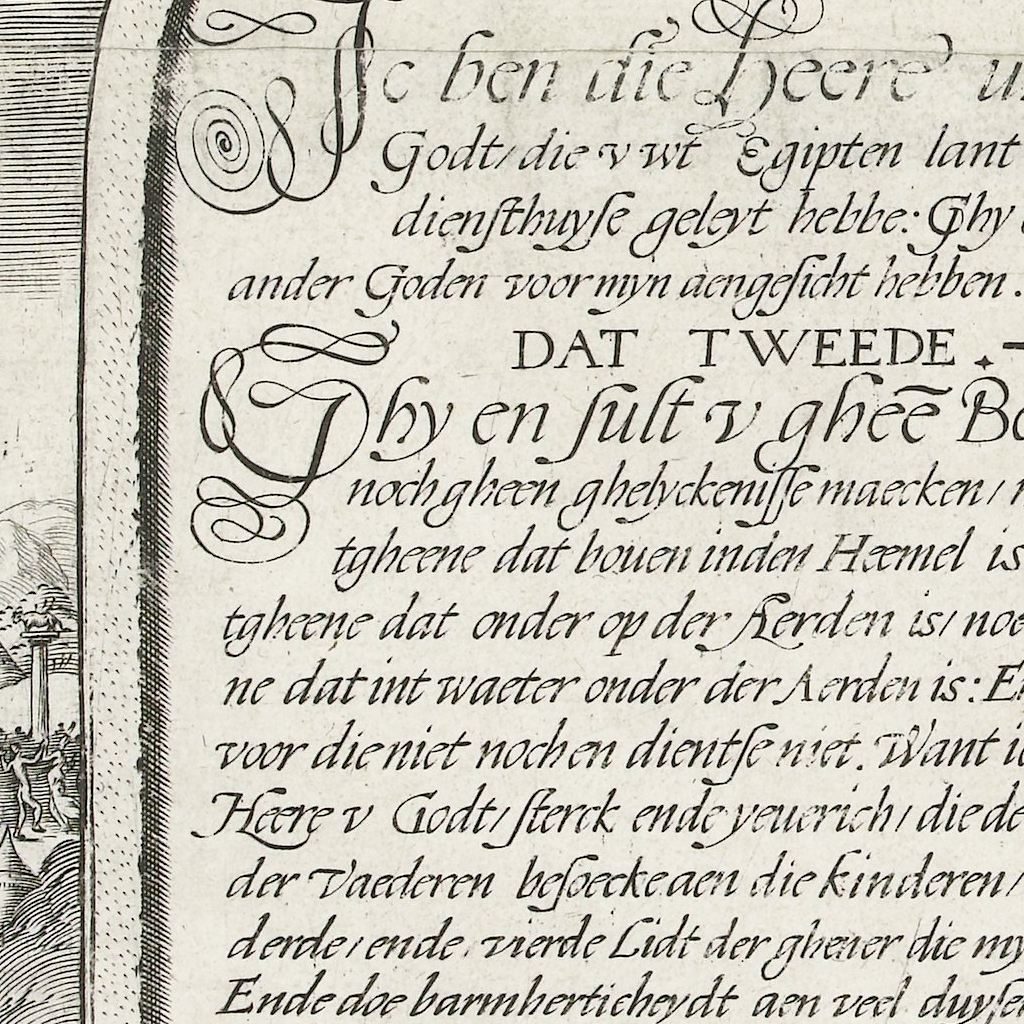 Ic ben die Heere
Godt/ die v wt Egipten lant
dienſthuyſe geleyt hebbe: Ghy
ander Goden voor myn aengeſicht hebben.
DAT TWEEDE.
Ghy en ſult v gheē
noch gheen ghelyckeniſſe maecken/
tgheene dat bouen inden Heemel is
tgheene dat onder op der Aerden is/
ne dat int waeter onder der Aerden is:
voor die niet noch en dientſe niet. Want
Heere v Godt/ ſterck ende yeuerich/ die
der Vaederen beſoecke aen die kinderen/
derde/ ende vierde Lidt der ghener die
Ende doe barmherticheydt aen veel